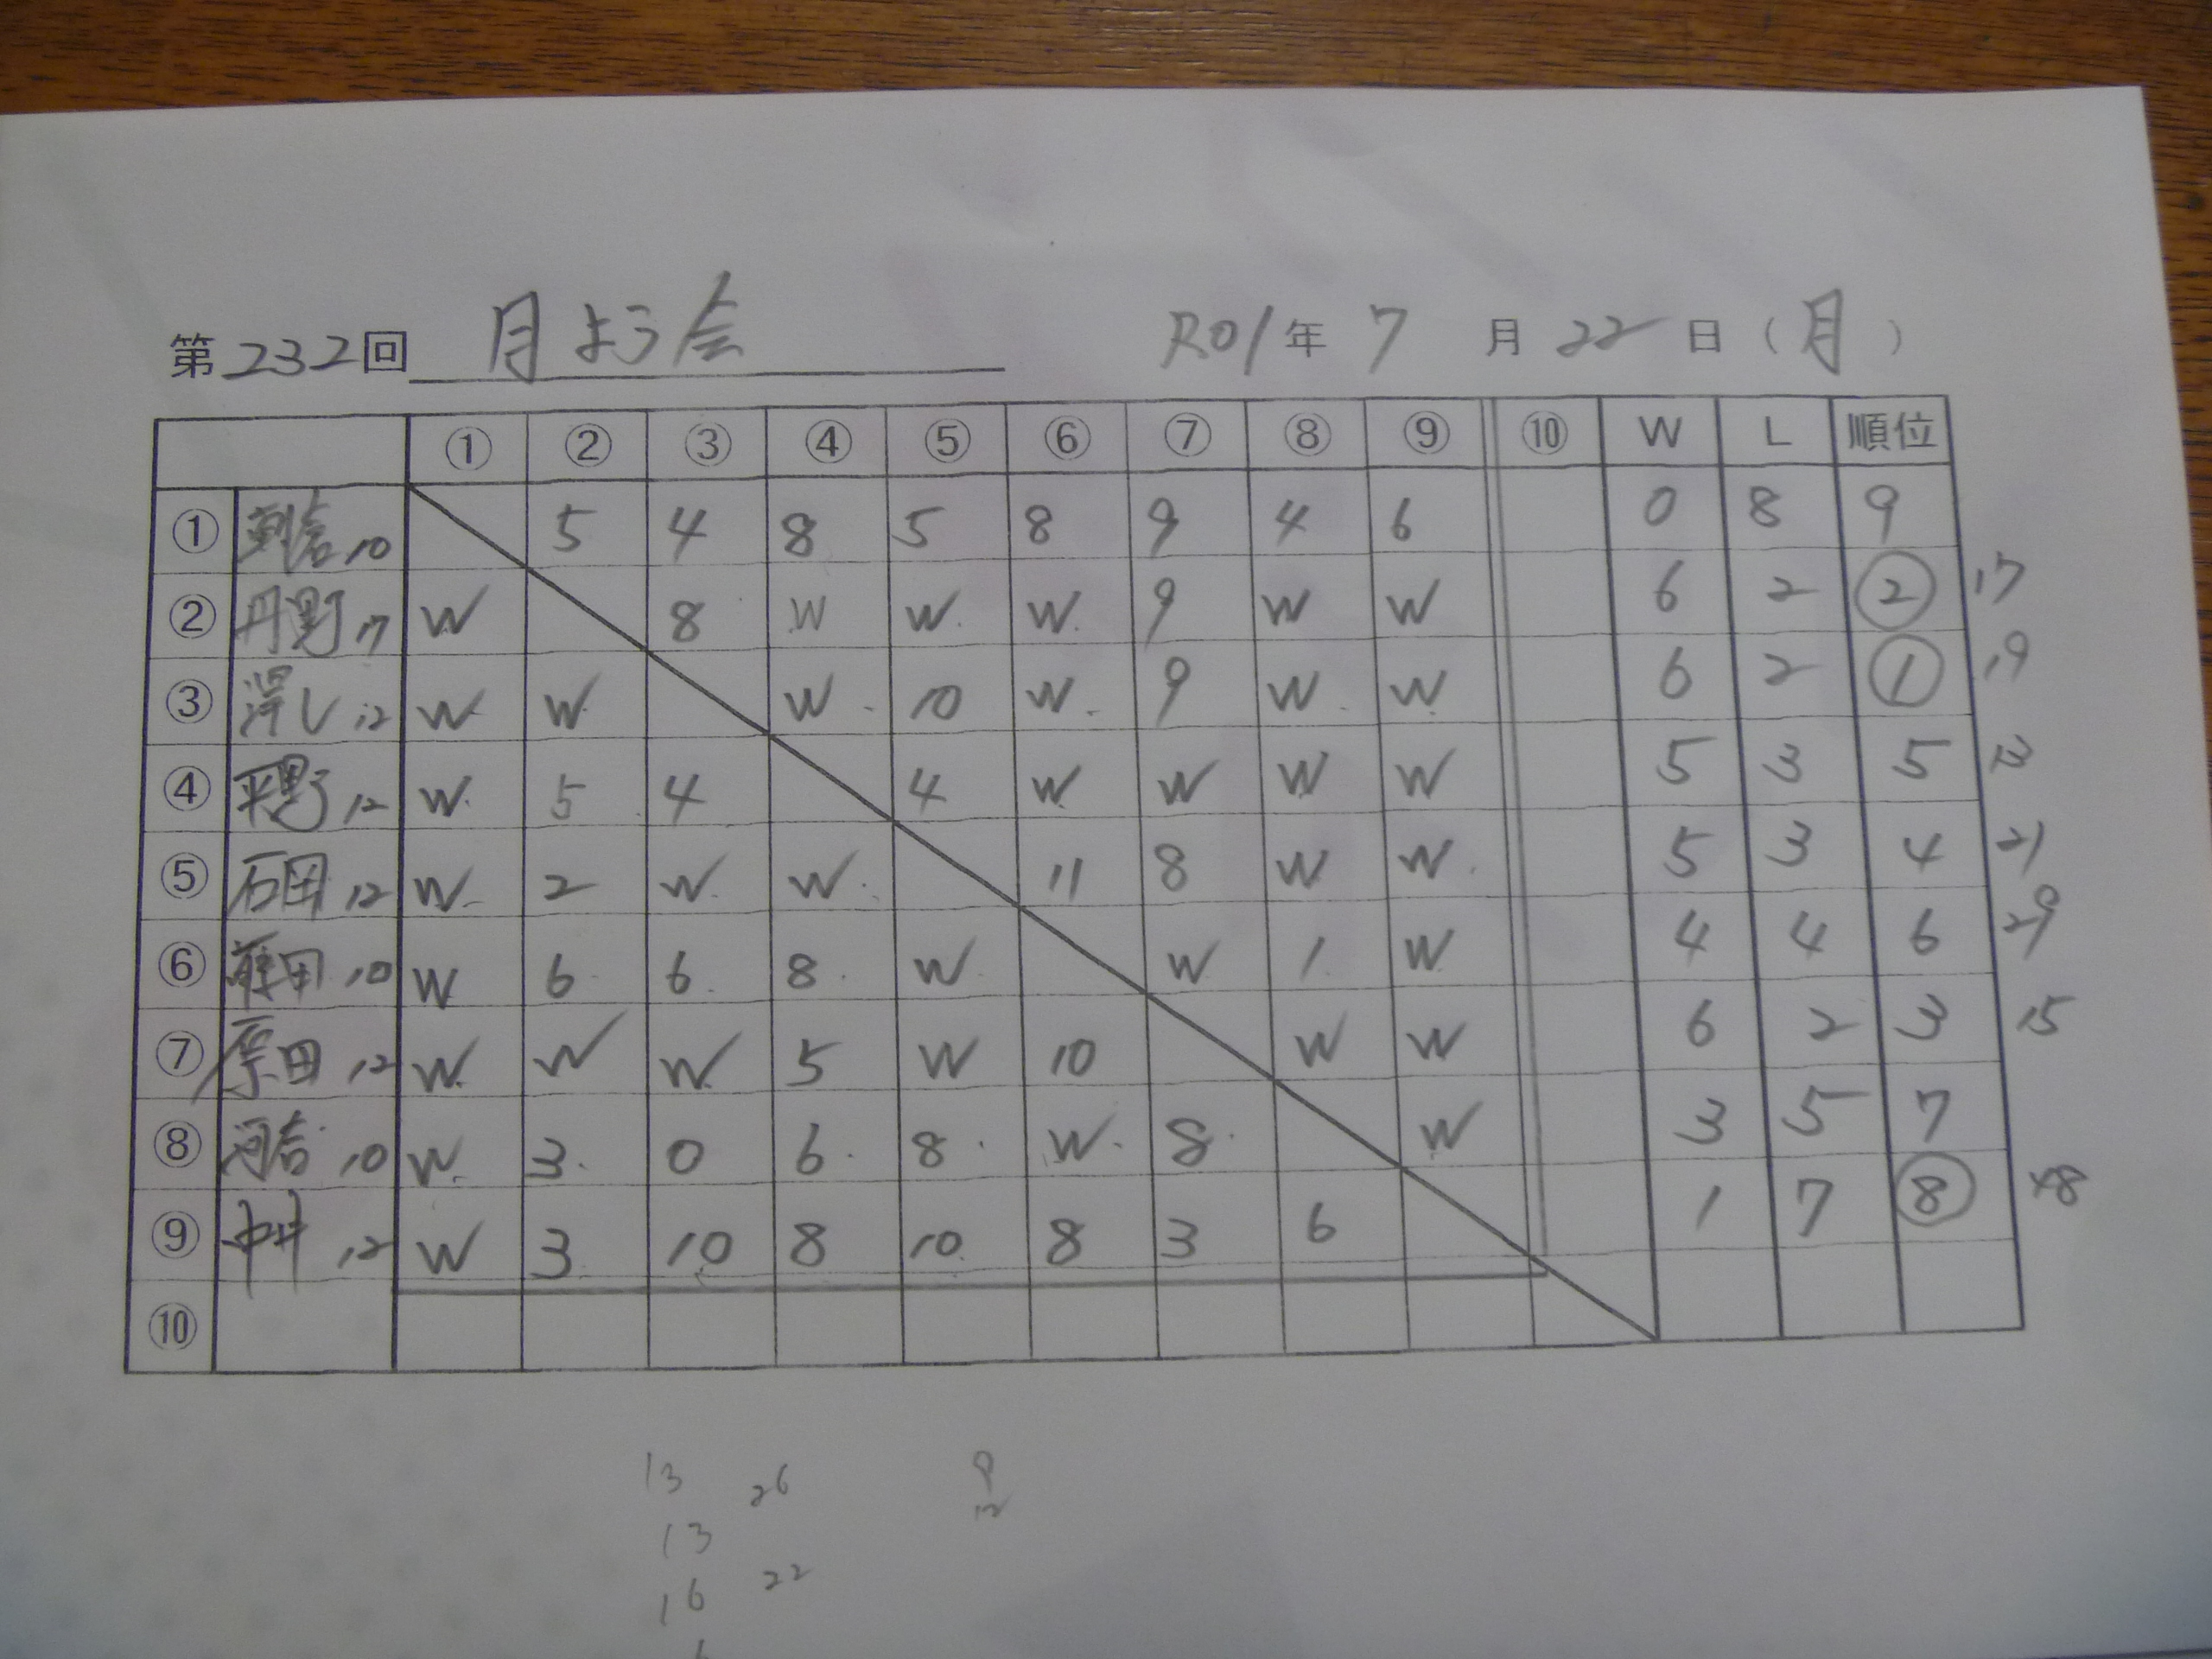 第232回 月よう会 R01年 7月 22日(月)
① ② ③ ④ ⑤ ⑥ ⑦ ⑧ ⑨ ⑩ W L 順位
① 10 5 4 8 5 8 9 4 6 0 8 9
② 丹野 17 W 8 W W W 9 W W 6 2 ② 17
③ 澤し 12 W W W 10 W 9 W W 6 2 ① 19
④ 平野 12 W 5 4 4 W W W W 5 3 5 13
⑤ 石田 12 W 2 W W 11 8 W W 5 3 4 21
⑥ 藤田 10 W 6 6 8 W W 1 W 4 4 6 29
⑦ 原田 12 W W W 5 W 10 W W 6 2 3 15
⑧ 河合 10 W 3 0 6 8 W 8 W 3 5 7
⑨ 中井 12 W 3 10 8 10 8 3 6 1 7 ⑧ 48
⑩
13 26 9
12
13
16 22